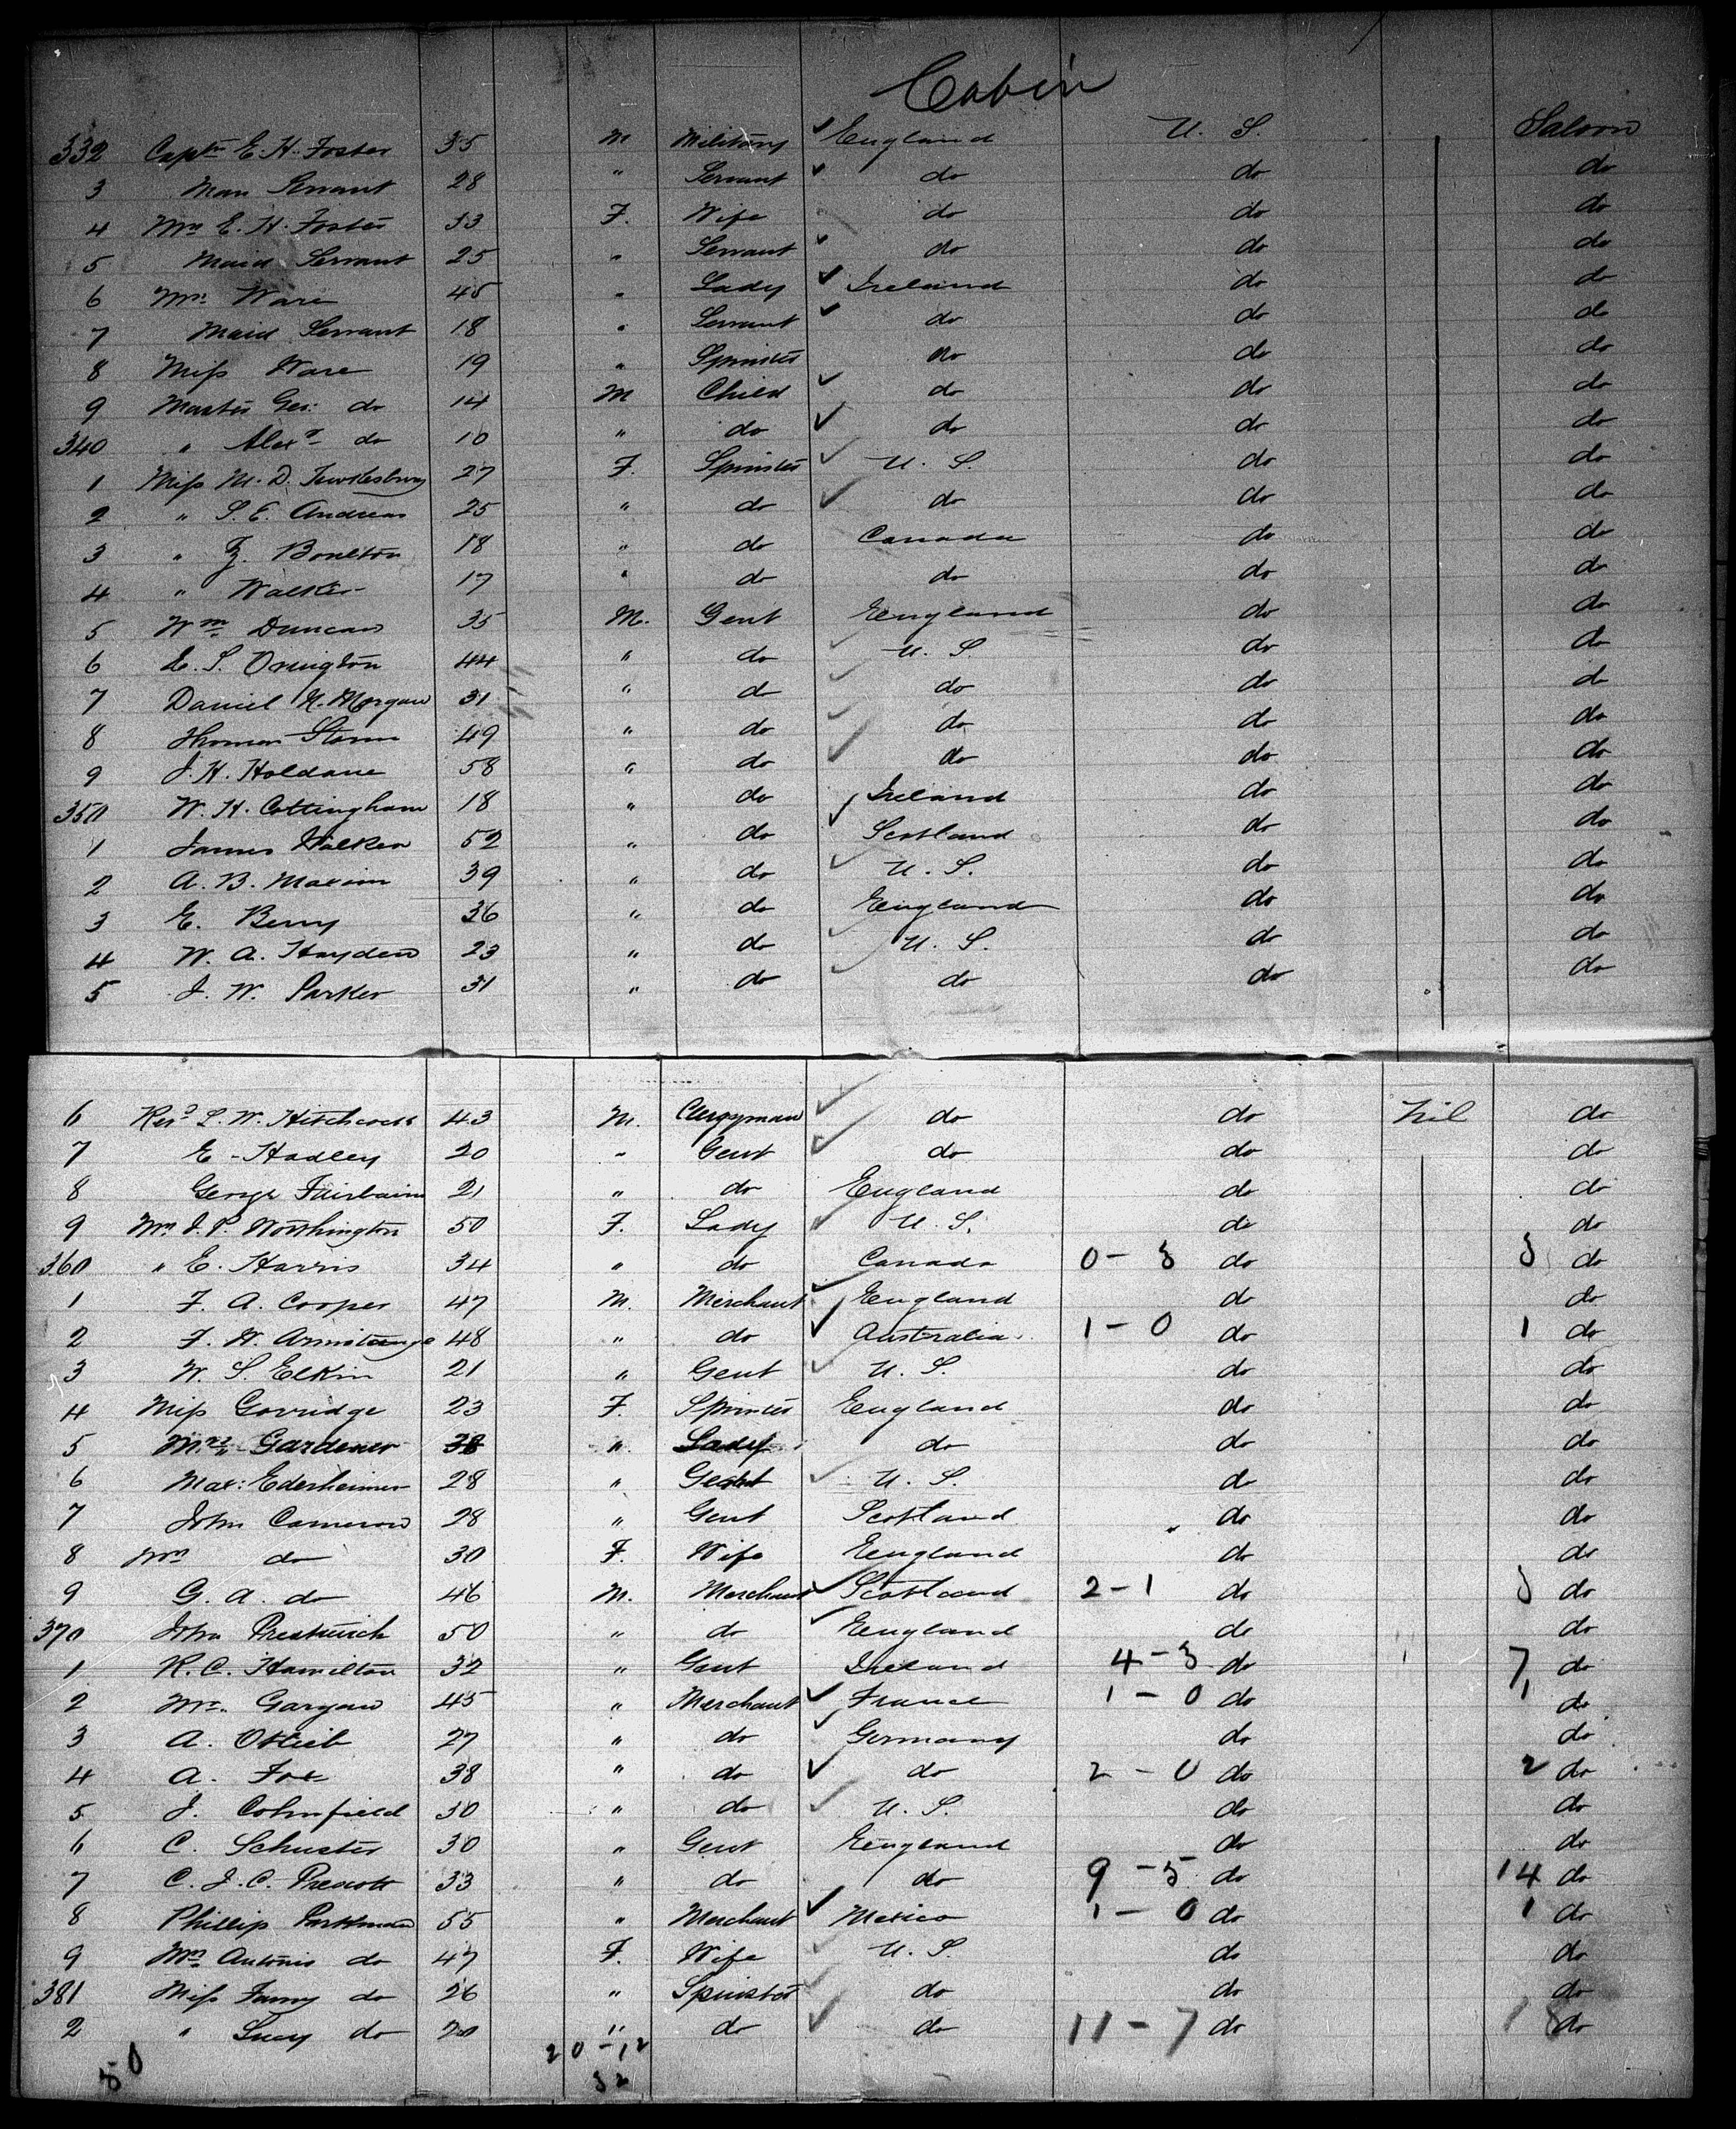 Cabin
332 Captn E. H. Foster 35 M Military England U. S. Saloon
3 Man Servant 28 " Servant do do do
4 Mrs E. H. Foster 33 F. Wife do do do
5 Maid Servant 25 " Servant do do do
6 Mrs Ware 45 " Lady Ireland do do
7 Maid Servant 18 " Servant do do do
8 Miss Ware 19 " Spinster do do do
9 Master Geo: do 14 M Child do do do
340 " Alexr do 10 " do do do do
1 Miss M. D. Tewksbury 27 F. Spinster U. S. do do
2 " S. E. Andrews 25 " do do do do
3 " Boulton 18 " do Canada do do
4 " Walker 17 " do do do do
5 Wm Duncan 35 M. Gent England do do
6 S. Ovington 44 " do U. S. do do
7 Daniel N. Morgan 31 " do do do do
8 Thomas Storm 49 " do do do do
9 J. H. Holdane 58 " do do do do
350 W. H. Cottingham 18 " do Ireland do do
1 James Walker 52 " do Scotland do do
2 A. B. Maxim 39 " do U. S. do do
3 E. Berry 36 " do England do do
4 W. A. Hayden 23 " do U. S. do do
5 J. W. Parker 31 " do do do do
6 Revd L. W. Hitchcock 43 M. Clergyman do do Nil do
7 E. Hadley 20 " Gent do do do
8 George Fairbairn 21 " do England do do
9 Mrs J. P. Worthington 50 F. Lady U. S. do do
360 " E. Harris 34 " do Canada 0 - 3 do 3 do
1 F. A. Cooper 47 M. Merchant England do do
2 F. W. Armitage 48 " do Australia 1 - 0 do 1 do
3 W. S. Elkin 21 " Gent U. S. do do
4 Miss Govridge 23 F. Spinster England do do
5 Mrs Gardener 38 " Lady do do do
6 Max: Ederheimer 28 " Gent U. S. do do
7 John Cameron 28 " Gent Scotland do do
8 Mrs do 30 F. Wife England do do
9 G. A. do 46 M. Merchant Scotland 2 - 1 do 3 do
370 John Prestwich 50 " do England do do
1 R. C. Hamilton 32 " Gent Ireland 4 - 3 do 7 do
2 Mr. Gargan 45 " Merchant France 1 - 0 do 1 do
3 A. Ottieb 27 " do Germany do do
4 A. Fox 38 " do do 2 - 0 do 2 do
5 J. Cohnfield 30 " do U. S. do do
6 C. Schuster 30 " Gent England do do
7 C. J. C. Prescott 33 " do do 9 - 5 do 14 do
8 Phillip Parkman 55 " Merchant Mexico 1 - 0 do 1 do
9 Mrs Antonio do 47 F. Wife U. S. do do
381 Miss Fanny do 26 " Spinster do do do
2 " Lucy do 20 " do do 11 - 7 do 18 do
50 20 - 12
32